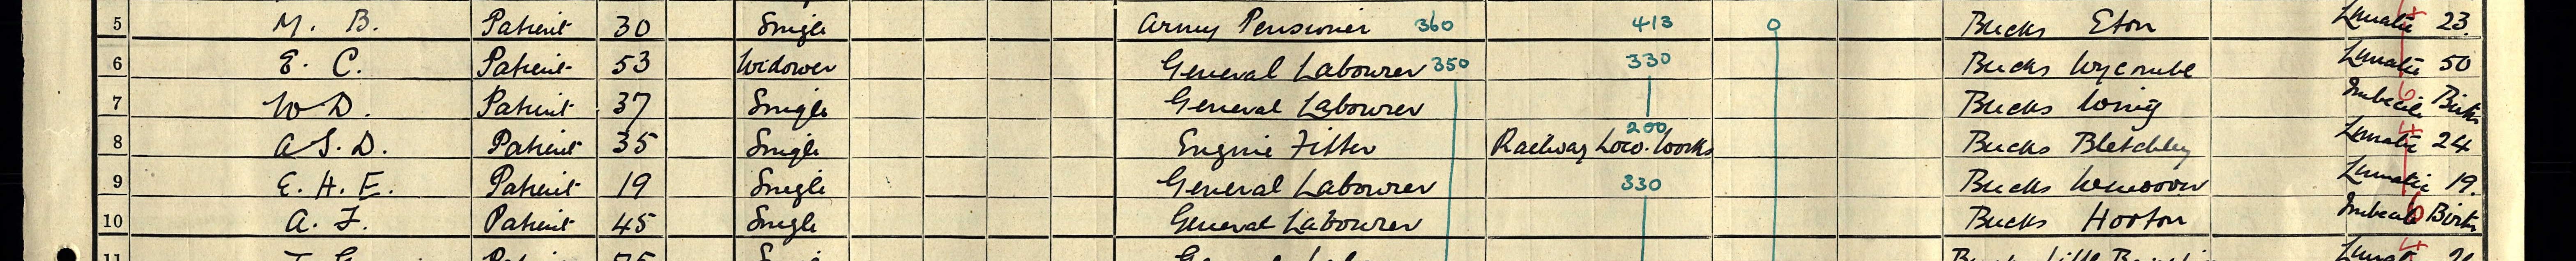 5 M. B. Patient 30 Single Army Pensioner 360 413 0 Bucks Eton Lunatic 23.
6 E. C. Patient 53 Widower General Labourer 350 330 Bucks Wycombe Lunatic 50
7 W D. Patient 37 Single General Labourer Bucks Wing Imbecile Birth
8 A S. D. Patient 35 Single Engine Fitter 200 Railway Loco. Works Bucks Bletchley Lunatic 24
9 E. H. E. Patient 19 Single General Labourer 330 Bucks Lunatic 19.
10 A. F. Patient 45 Single General Labourer Bucks Horton Imbecile Birth
11